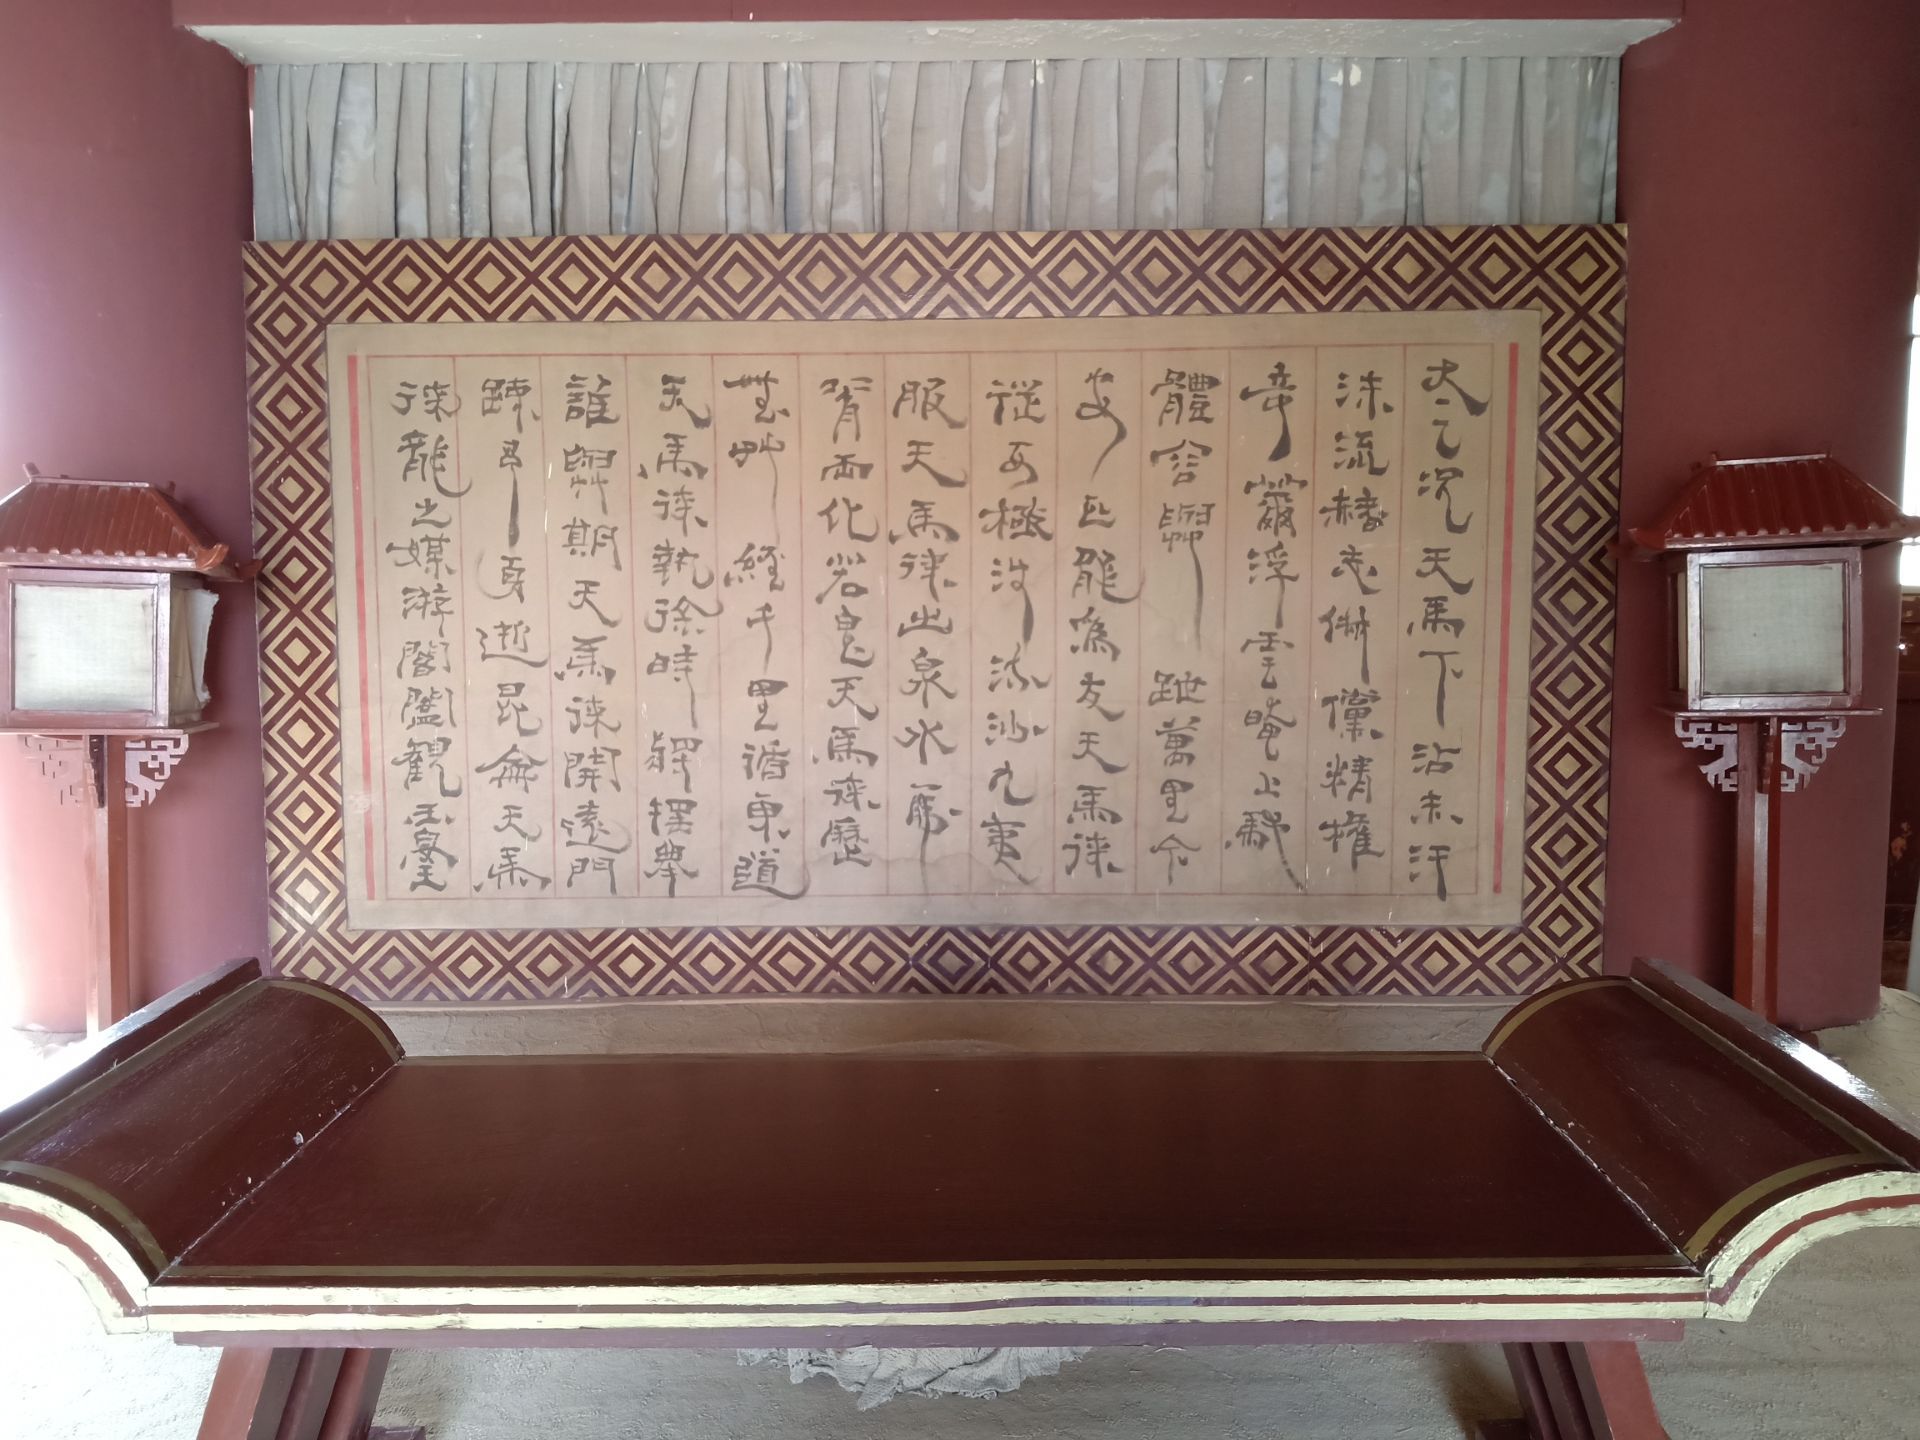 太乙況天馬下沾赤汗
沫流赭志俶儻精權
奇籋浮雲晻上馳
體容與跇萬里今
安匹龍為友天馬徠
從西極涉流沙九夷
服天馬徠出泉水虎
脊兩化若鬼天馬徠歷
無草經千里循東道
天馬徠執徐時將搖舉
誰與期天馬徠開遠門
竦予身逝昆侖天馬
徠龍之媒游閶闔觀玉臺